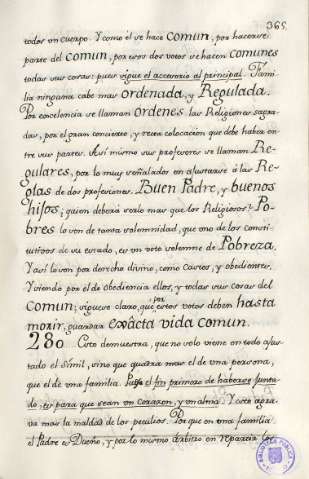 365.
todos un cuerpo. Y como él se hace COMUN, por hacerse
parte del COMUN, por esos dos votos se hacen COMUNES
todas sus cosas: pues sigue el accesorio al principal. Fami-
lia ninguna cabe mas Ordenada, y Regulada.
Por excelencia se llaman Ordenes las Religiones sagra-
das, por el gran concierto, y recta colocacion que debe haber en-
tre sus partes. Asi mismo sus profesores se llaman Re-
gulares, por lo muy señalados en ajustarse à las Re-
glas de sus profesiones. Buen Padre, y buenos
hijos; quien deberà serlo mas que los Religiosos? Po-
bres lo son de tanta solemnidad, que uno de los consti-
tutivos de su estado, es un voto solemne de Pobreza.
Y asi lo son por derecho divino, como Castos, y obedientes.
Y siendo por el de obediencia ellos, y todas sus cosas del
COMUN; siguese claro, que por estos votos deben hasta
morir, guardar exâcta vida comun.
280 Esto demuestra, que no solo viene en todo ajus-
tado el Símil, sino que quadra mas el de una persona,
que el de una familia. Pues el fin primero de haberse junta-
do, es para que sean un corazon, y un alma. Y esto agra-
va mas la maldad de los peculios. Porque en una familia
el Padre es Dueño, y por lo mismo árbitro en repartir